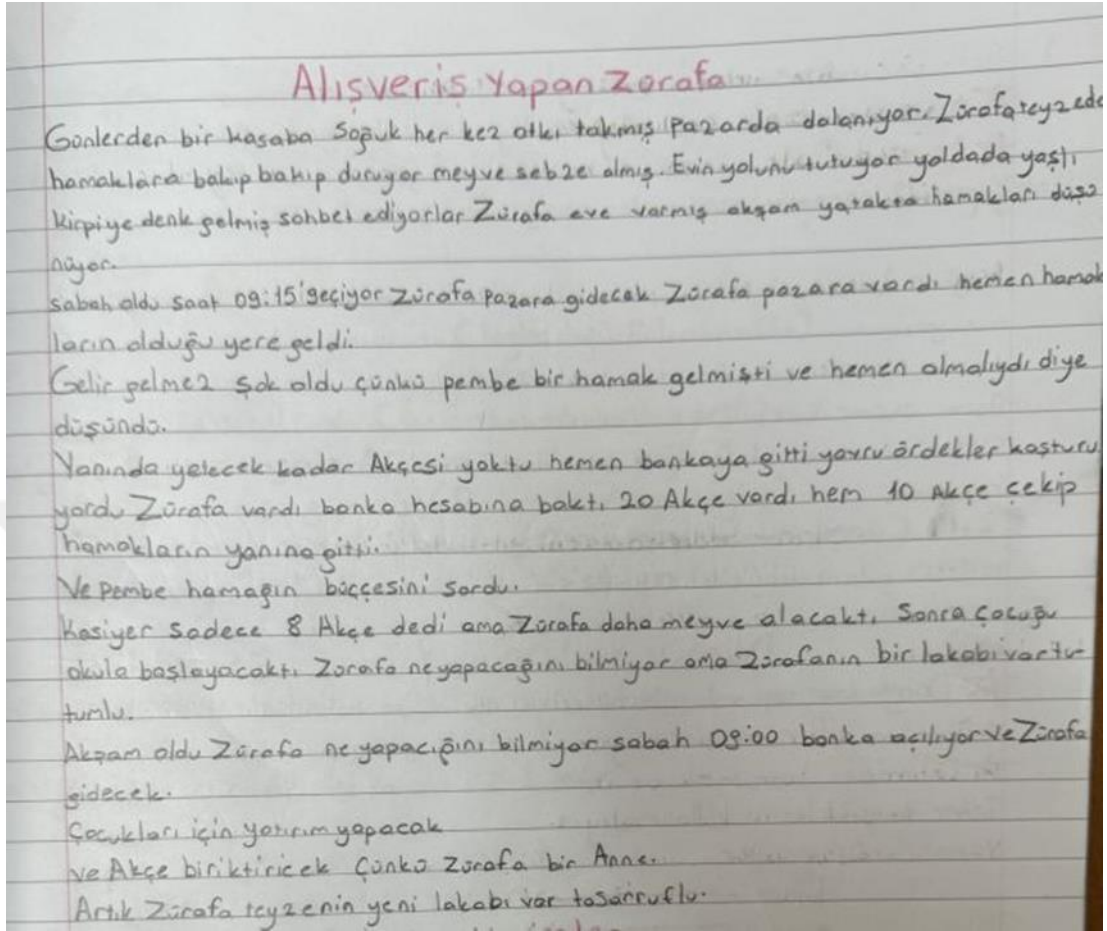 Alışveriş Yapan Zürafa
Günlerden bir kasaba Soğuk her kez atkı takmış pazarda dolanıyor. Zürafa teyzede
hamaklara bakıp bakıp duruyor meyve sebze almış. Evin yolunu tutuyor yoldada yaşlı
kirpiye denk gelmiş sohbet ediyorlar Zürafa eve varmış akşam yatakta hamakları düşü
nüyor.
sabah oldu saat 09:15'geçiyor Zürafa pazara gidecek Zürafa pazara vardı hemen hamak
ların olduğu yere geldi.
Gelir gelmez şok oldu çünkü pembe bir hamak gelmişti ve hemen almalıydı diye
düşündü.
Yanında yetecek kadar Akçesi yoktu hemen bankaya gitti yavru ördekler koşturu
yordu Zürafa vardı banka hesabına baktı 20 Akçe vardı hem 10 Akçe çekip
hamakların yanına gitti.
Ve pembe hamağın bütçesini sordu.
Kasiyer sadece 8 Akçe dedi ama Zürafa daha meyve alacaktı Sonra çocuğu
okula başlayacaktı Zürafa ne yapacağını bilmiyor ama Zürafanın bir lakabı var tu-
tumlu.
Akşam oldu Zürafa ne yapacığını bilmiyor sabah 09:00 banka açılıyor ve Zürafa
gidecek.
Çocukları için yatırım yapacak
ve Akçe biriktiricek Çünkü Zürafa bir Anne.
Artık Zürafa teyzenin yeni lakabı var tasarruflu.